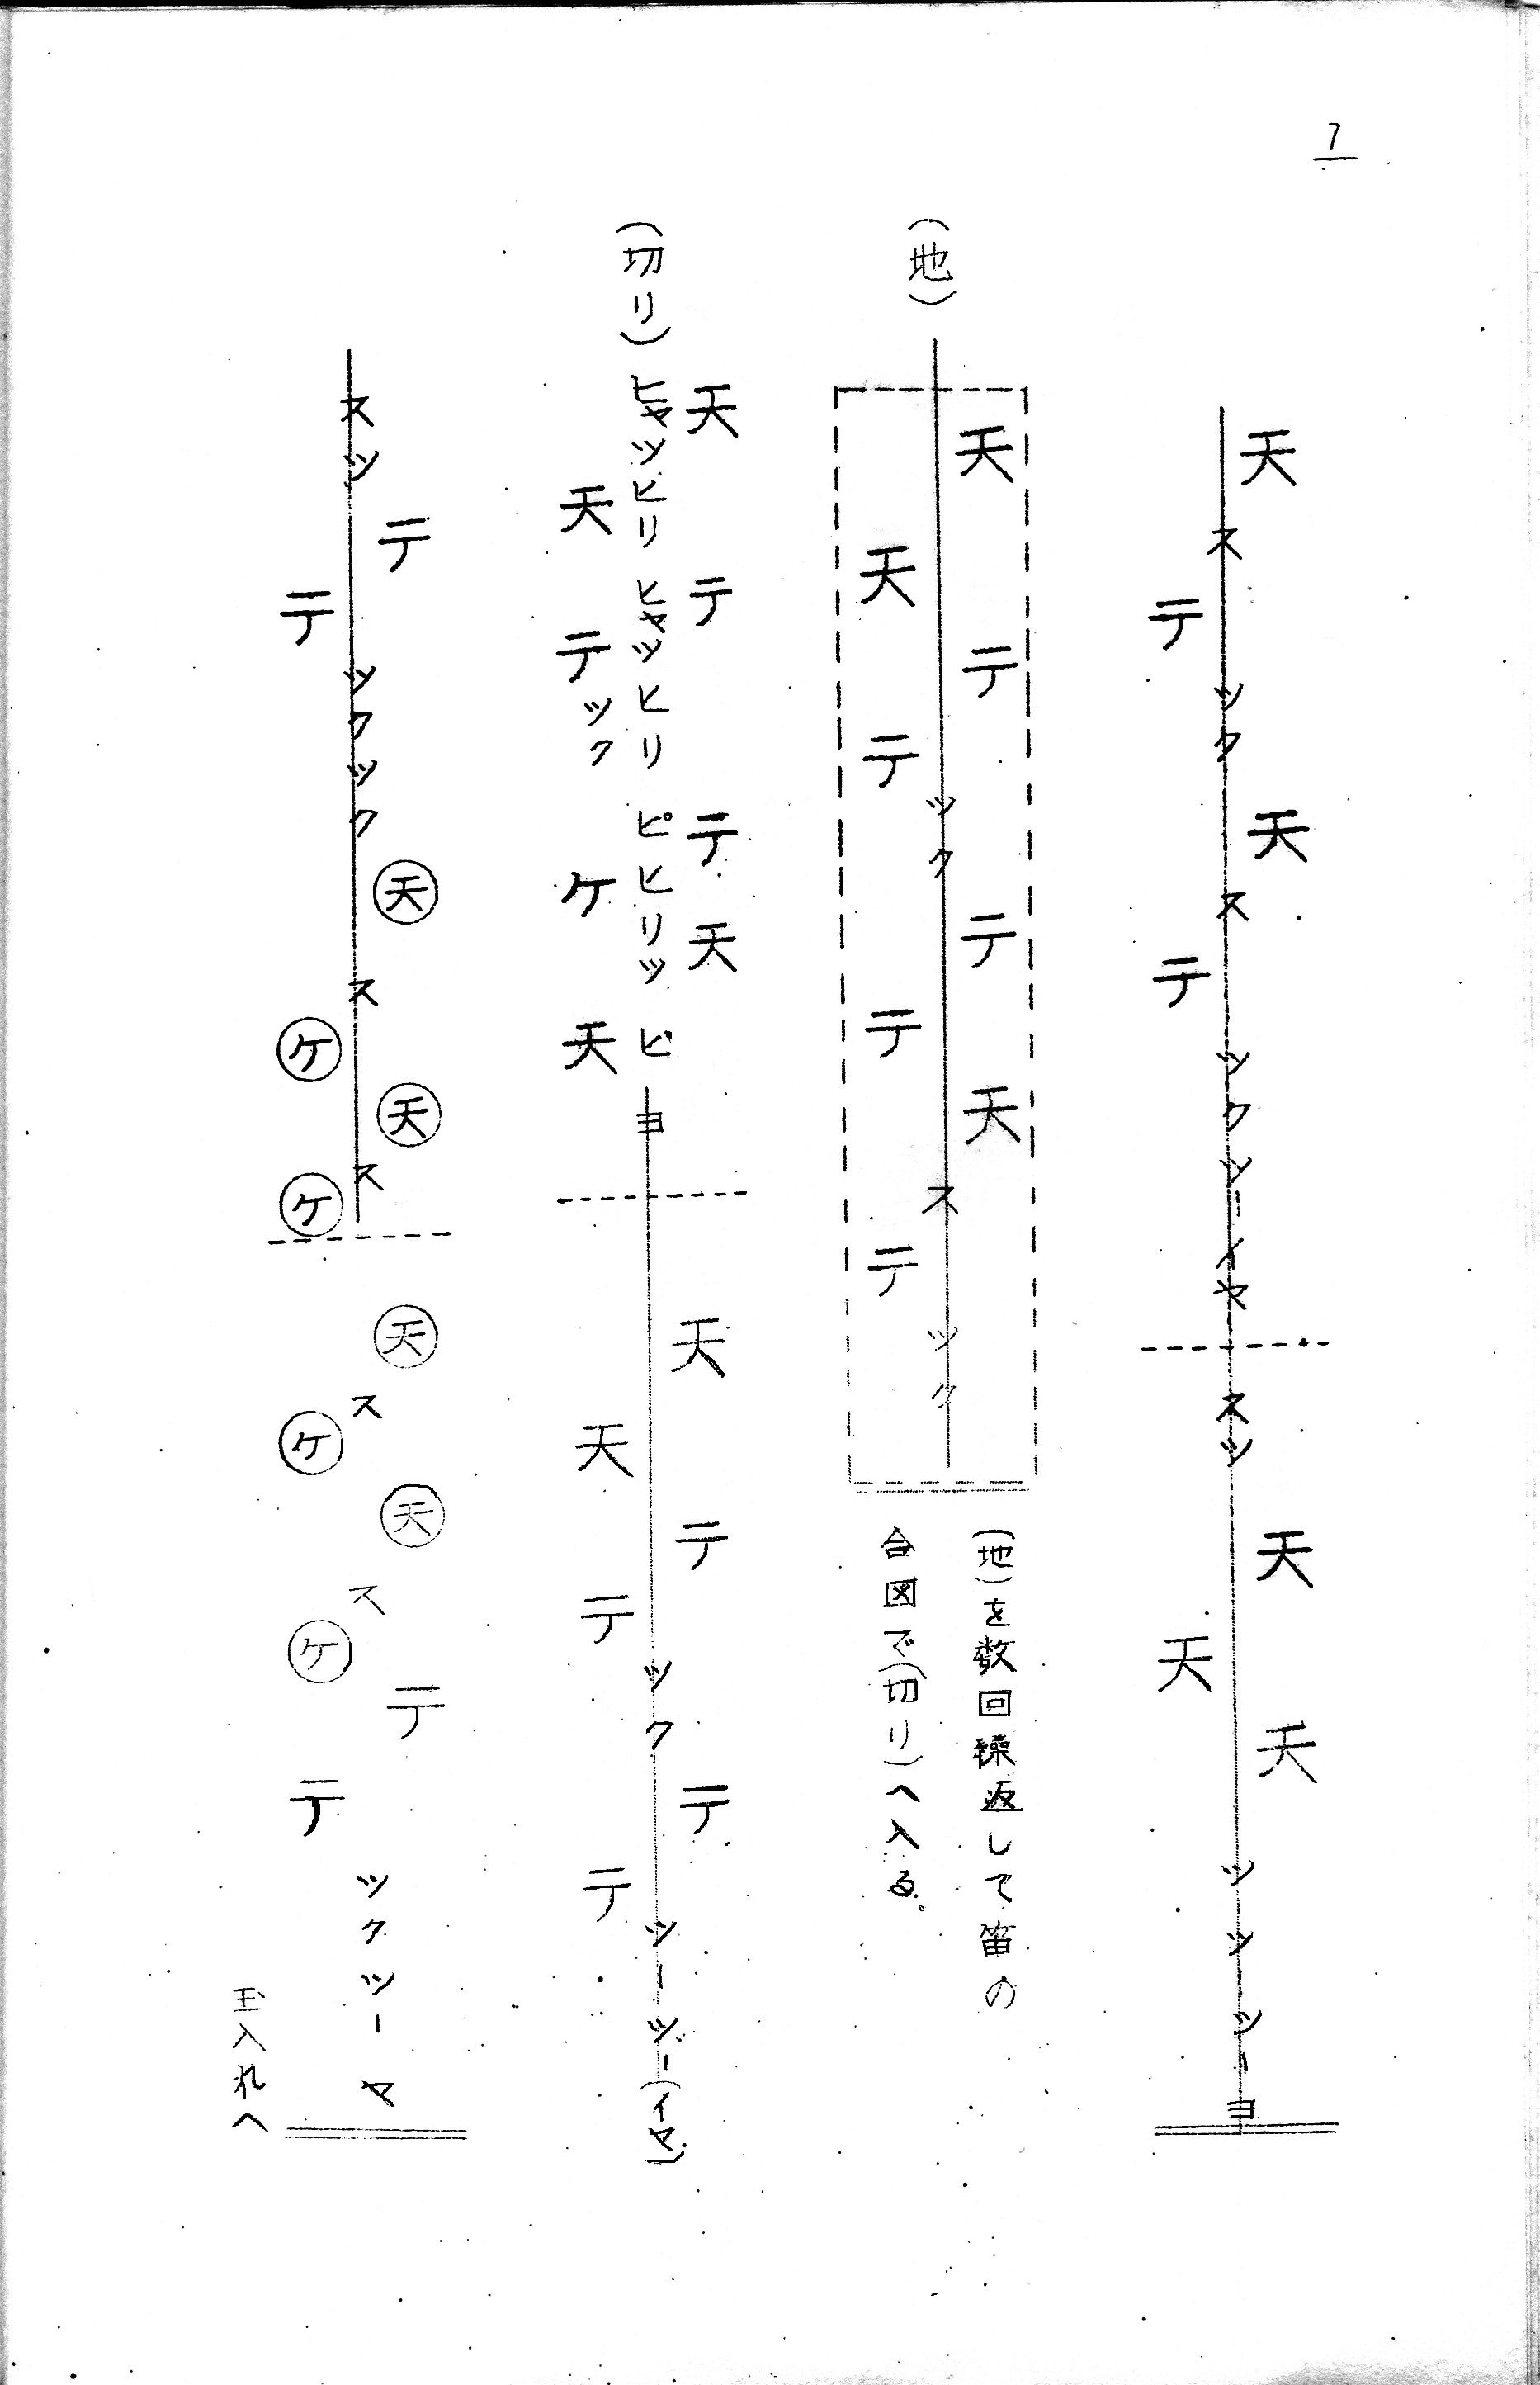 7
天ステツク天スステツクツーイヤスツ天天天ツツーツーヨ
(地)天天テテツクテテ天ステツク
(地)を数回繰返して笛の
合図で(切り)へ入る。
天テテ天
(切り)ヒャツヒリヒャツヒリピヒリツピヨ天天テテツクテテツーツー(イヤ)
天テツクケ天
スツテテツクツク天スケ天スケ天スケ天スケテテツクツーヤ
玉入れへ